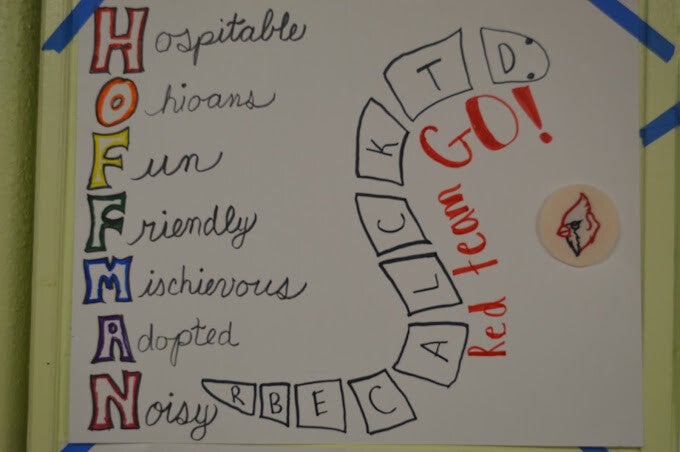 Hospitable
Ohioans
Fun
Friendly
Mischievous
Adopted
Noisy
R B E C A L C K T D
Red team GO!